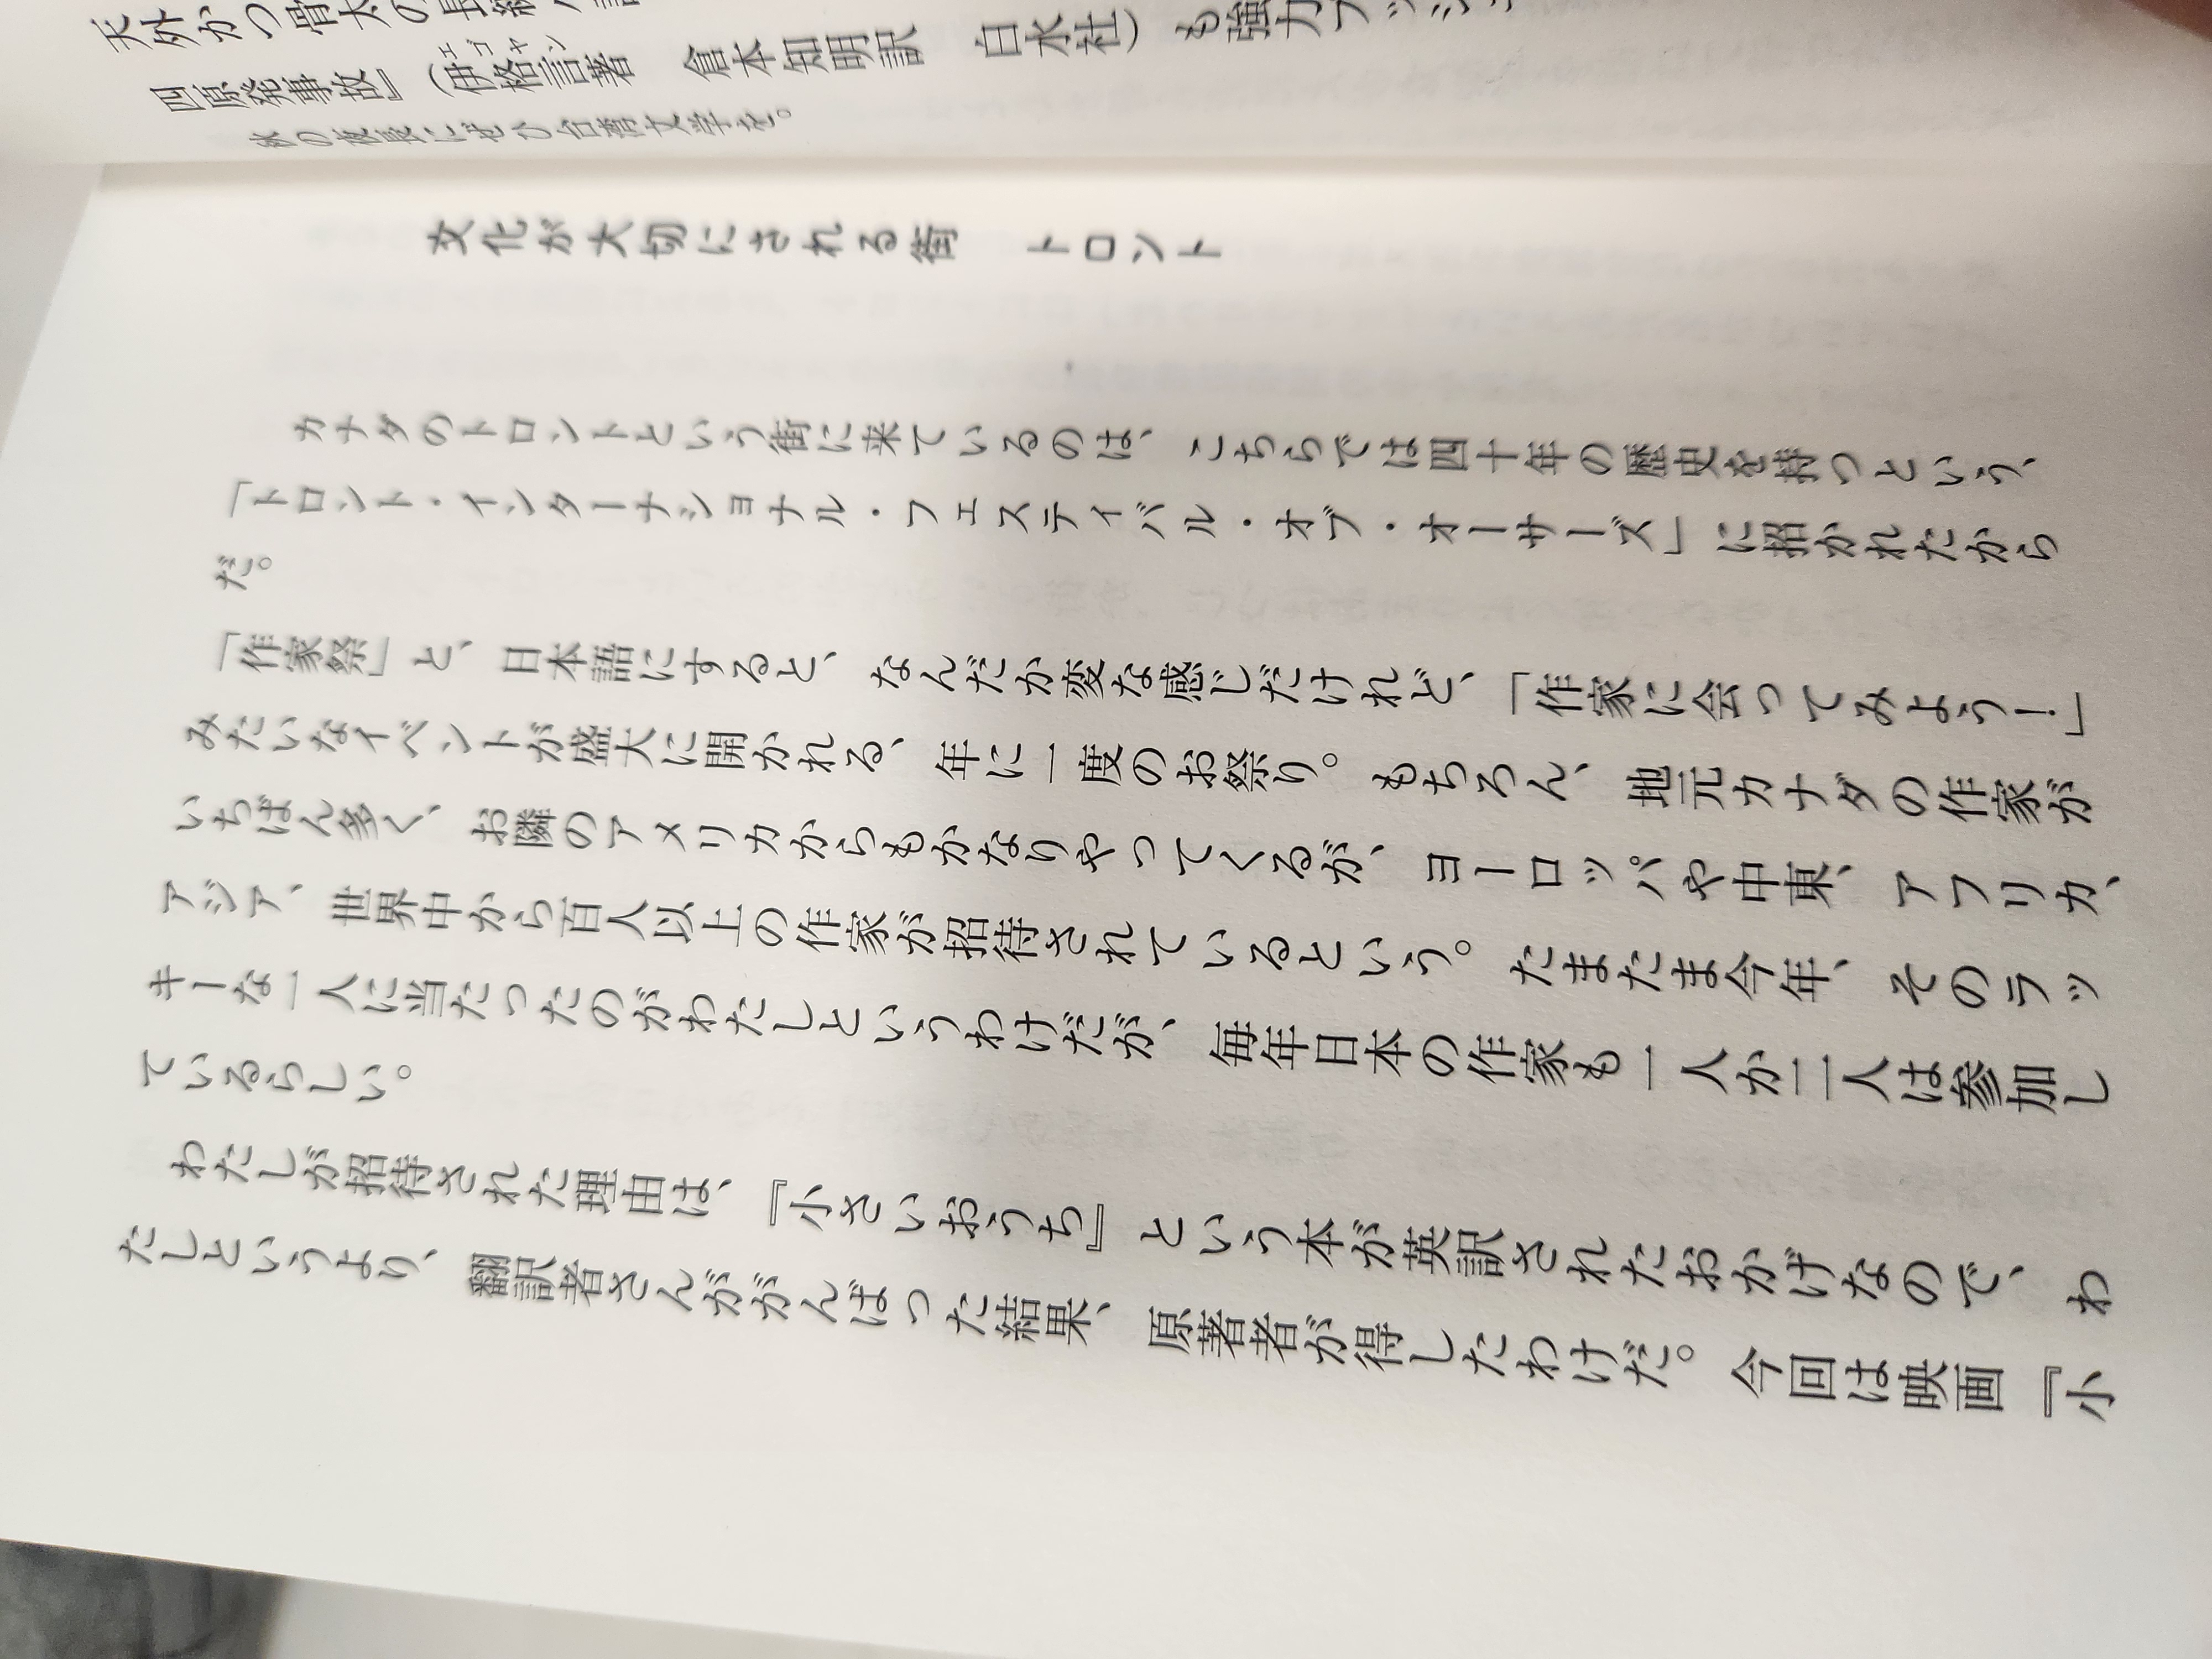 四原発事故』（伊格言著　倉本知明訳　白水社）も強力プッシュ
秋の夜長にぜひ台湾文学を。
文化が大切にされる街　トロント
カナダのトロントという街に来ているのは、こちらでは四十年の歴史を持つという、
「トロント・インターナショナル・フェスティバル・オブ・オーサーズ」に招かれたから
だ。
「作家祭」と、日本語にすると、なんだか変な感じだけれど、「作家に会ってみよう！」
みたいなイベントが盛大に開かれる、年に一度のお祭り。もちろん、地元カナダの作家が
いちばん多く、お隣のアメリカからもかなりやってくるが、ヨーロッパや中東、アフリカ、
アジア、世界中から百人以上の作家が招待されているという。たまたま今年、そのラッ
キーな一人に当たったのがわたしというわけだが、毎年日本の作家も一人か二人は参加し
ているらしい。
わたしが招待された理由は、『小さいおうち』という本が英訳されたおかげなので、わ
たしというより、翻訳者さんががんばった結果、原著者が得したわけだ。今回は映画『小